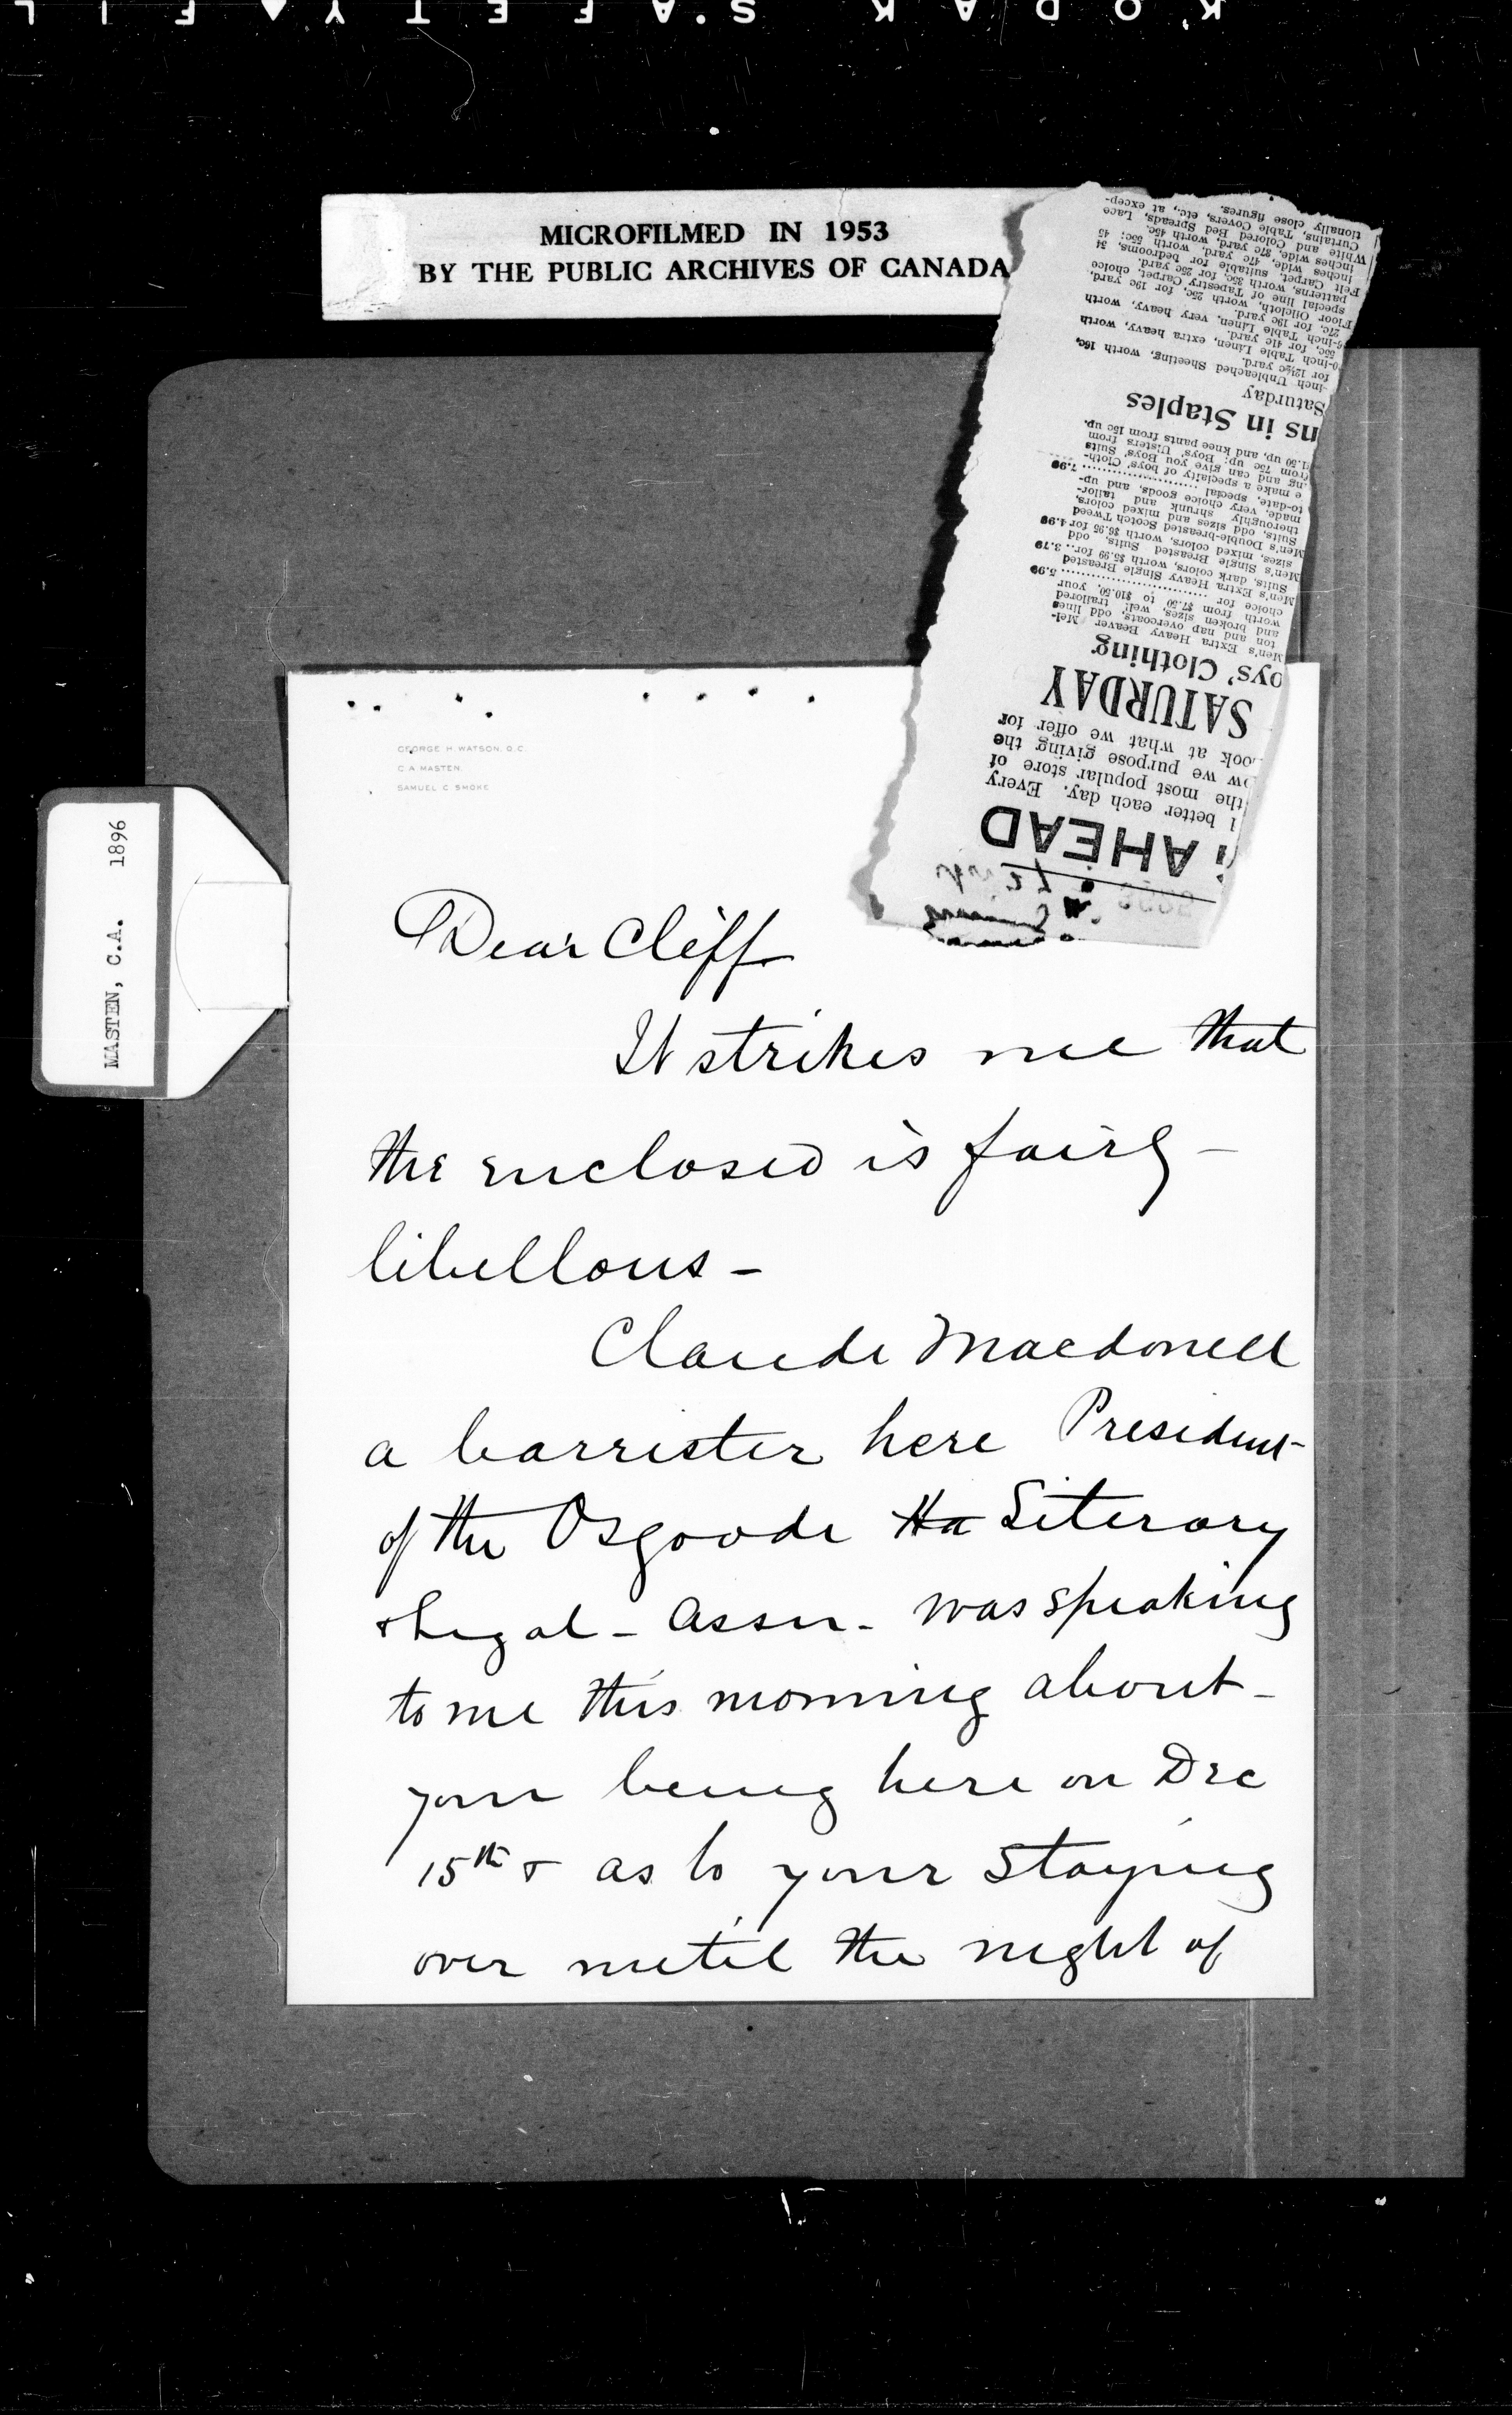 KODAK SAFETY FIL
MICROFILMED IN 1953
BY THE PUBLIC ARCHIVES OF CANADA
MASTEN, C.A. 1896
GEORGE H. WATSON, Q.C.
C. A. MASTEN.
SAMUEL C. SMOKE
Dear Cliff
It strikes me that
the enclosed is fairly
libellous -
Claude Macdonell
a barrister here President
of the Osgoode Ha Literary
& Legal - Assn - was speaking
to me this morning about -
your being here on Dec
15th & as to your staying
over until the night of
AHEAD
l better each day. Every
the most popular store of
ow we purpose giving the
ook at what we offer for
SATURDAY
oys' Clothing
Men's Extra Heavy Beaver Mel-
ton and nap overcoats, odd lines
and broken sizes, well trailored
worth from $7.50 to $10.50, your
choice for .......... 5.99
Men's Extra Heavy Single Breasted
Suits, dark colors, worth $5.99 for.. 3.79
Men's Single Breasted Suits, odd
sizes, mixed colors, worth $6.95 for 4.99
Men's Double-breasted Scotch Tweed
Suits, odd sizes and mixed colors,
thoroughly shrunk and tailor-
made, very choice goods, and up-
to-date, special .......... 7.99
e make a specialty of boys' Cloth-
ng and can give you Boys' Suits
from 75c up; Boys' Ulsters from
$1.50 up, and knee pants from 15c up.
ns in Staples
Saturday
-inch Unbleached Sheeting, worth 16c,
for 12½c yard.
0-inch Table Linen, extra heavy, worth
55c, for 41c yard.
6-inch Table Linen, very heavy, worth
27c, for 19c yard.
Floor Oilcloth, worth 25c, for 19c yard,
special line of Tapestry Carpet, choice
patterns, worth 35c, for 25c yard.
Felt Carpet, suitable for bedrooms, 34
inches wide, 47c yard, worth 55c; 45
inches wide, 37c yard, worth 45c.
White and Colored Bed Spreads, Lace
Curtains, Table Covers, etc., at excep-
tionally close figures.